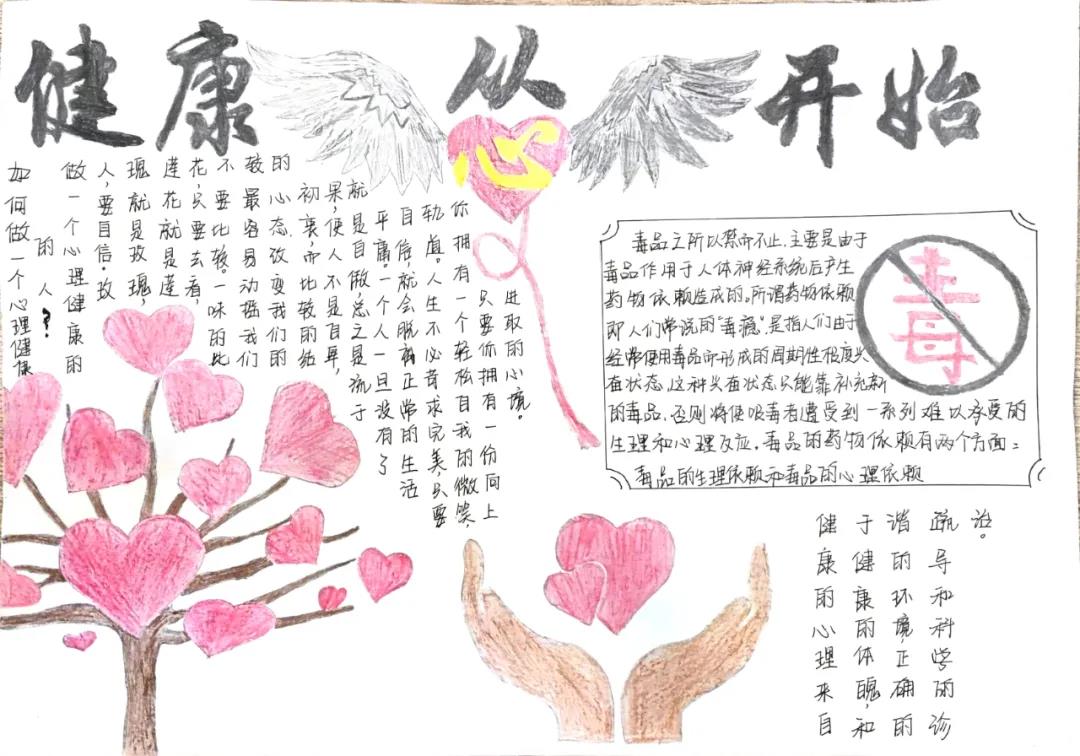 健康从心开始
如何做一个心理健康
的人?
做一个心理健康的
人,要自信。玫
瑰就是玫瑰,
莲花就是莲
花,只要去看,
不要比较。一味的比
较最容易动摇我们
的心态,改变我们的
初衷,而比较的结
果,使人不是自卑,
就是自傲,总之是流于
平庸。一个人一旦没有了
自信,就会脱离正常的生活
轨道。人生不必苛求完美,只要
你拥有一个轻松自我的微笑,
只要你拥有一份向上
进取的心境。
毒品之所以禁而不止,主要是由于
毒品作用于人体神经系统后产生
药物依赖造成的。所谓药物依赖
即人们常说的“毒瘾”,是指人们由于
经常使用毒品所形成的周期性极度头
奋状态,这种头奋状态只能靠补充新
的毒品,否则将使吸毒者遭受到一系列难以承受的
生理和心理反应。毒品的药物依赖有两个方面:
毒品的生理依赖和毒品的心理依赖
毒
健康的心理来自
于健康的体魄,和
谐的环境,正确的
疏导和科学的诊
治。